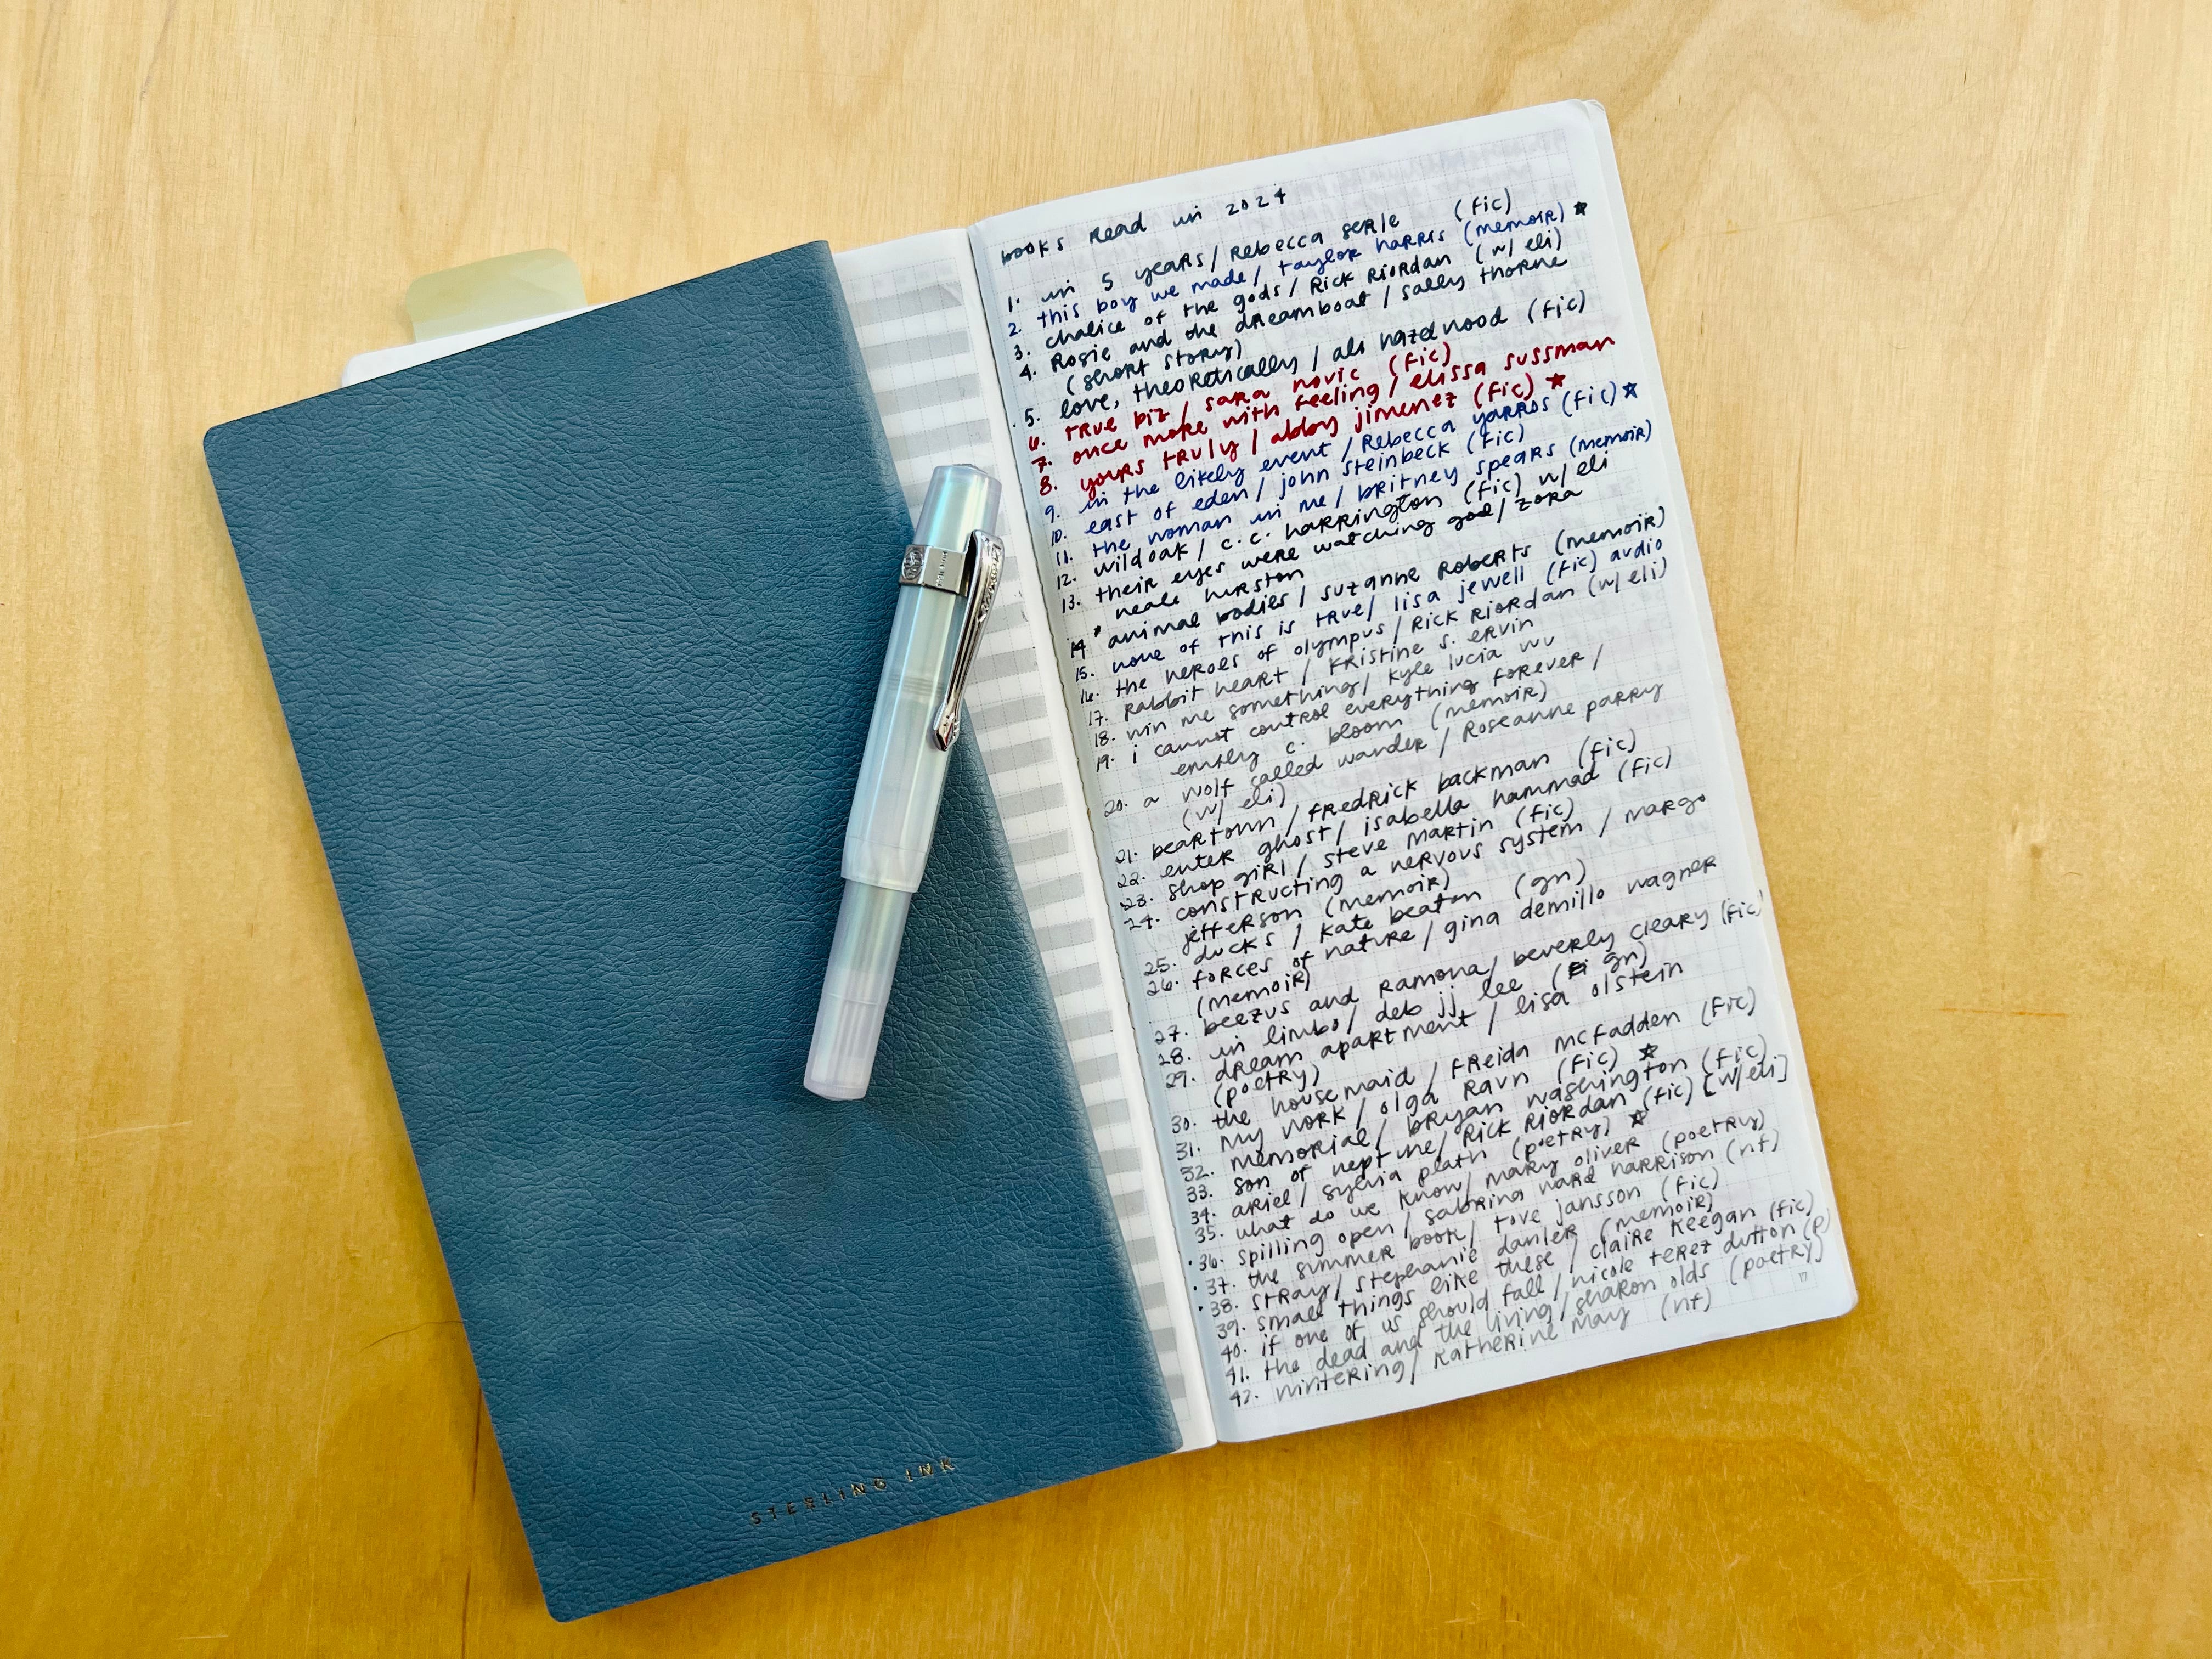 books read in 2024
1. in 5 years / Rebecca serle (fic)
2. this boy we made / taylor harris (memoir) ★
3. chalice of the gods / Rick Riordan (w/ eli)
4. Rosie and the dreamboat / sally thorne
(short story)
5. love, theoretically / ali hazelwood (fic)
6. true biz / sara novic (fic)
7. once more with feeling / elissa sussman
8. yours truly / abby jimenez (fic) ★
9. in the likely event / Rebecca yarros (fic) ★
10. east of eden / john steinbeck (fic)
11. the woman in me / britney spears (memoir)
12. wild oak / c.c. harrington (fic) w/ eli
13. their eyes were watching god / zora
neale hurston
14. * animal bodies / suzanne Roberts (memoir)
15. none of this is true / lisa jewell (fic) audio
16. the heroes of olympus / Rick Riordan (w/ eli)
17. Rabbit heart / Kristine s. ervin
18. win me something / kyle lucia wu
19. i cannot control everything forever /
emily c. bloom (memoir)
20. a wolf called wander / Roseanne parry
(w/ eli)
21. beartown / fredrick backman (fic)
22. enter ghost / isabella hammad (fic)
23. shop girl / steve martin (fic)
24. constructing a nervous system / margo
jefferson (memoir)
25. ducks / kate beaton (gn)
26. forces of nature / gina demillo wagner
(memoir)
27. beezus and Ramona / beverly cleary (fic)
28. in limbo / deb jj lee (gn)
29. dream apartment / lisa olstein
(poetry)
30. the housemaid / freida mcfadden (fic)
31. my work / olga Ravn (fic) ★
32. memorial / bryan washington (fic)
33. son of neptune / Rick Riordan (fic) [w/ eli]
34. ariel / sylvia plath (poetry) ★
35. what do we know / mary oliver (poetry)
• 36. spilling open / sabrina ward harrison (nf)
• 37. the summer book / tove jansson (fic)
• 38. stray / stephanie danler (memoir)
39. small things like these / claire keegan (fic)
40. if one of us should fall / nicole terez dutton (p)
41. the dead and the living / sharon olds (poetry)
42. wintering / katherine may (nf)
17
STERLING INK